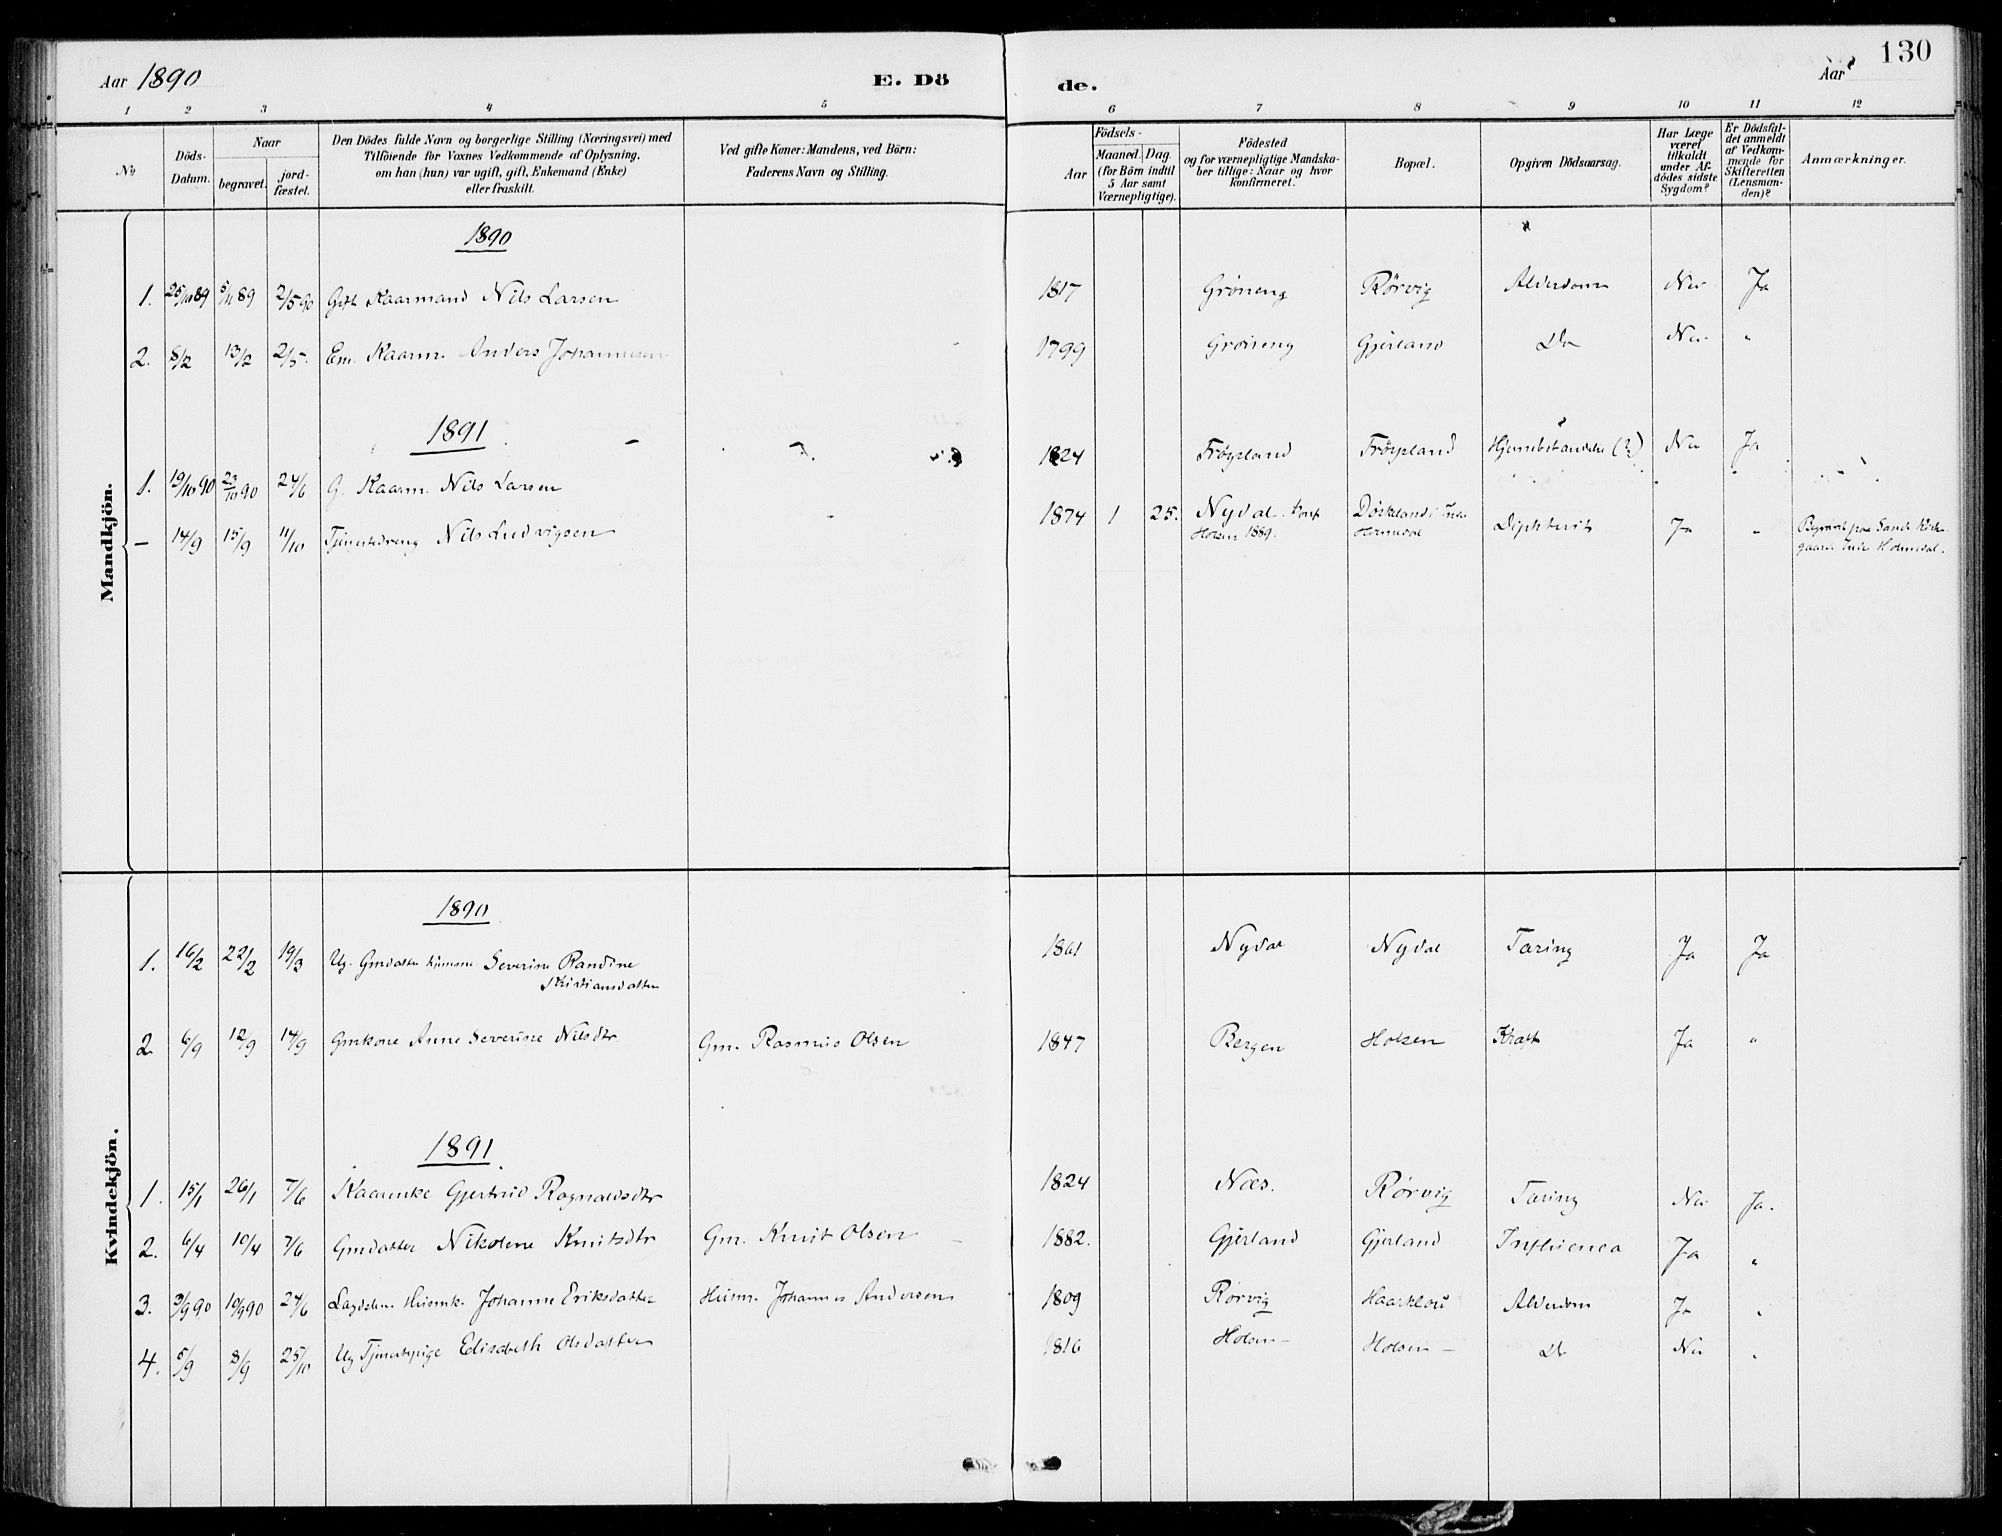 Aar 1890
E. Döde.
Aar
130
1 2 3 4 5 6 7 8 9 10 11 12
No
Döds-Datum.
Naar
begravet.
jord-fæstet.
Den Dödes fulde Navn og borgerlige Stilling (Næringsvei) med
Tilföiende for Voxnes Vedkommende af Oplysning,
om han (hun) var ugift, gift, Enkemand (Enke)
eller fraskilt.
Ved gifte Koner: Mandens, ved Börn:
Faderens Navn og Stilling.
Födsels-
Aar
Maaned. Dag.
(for Börn indtil
5 Aar samt
Værnepligtige).
Födested
og for værnepligtige Mandska-
ber tillige: Naar og hvor
konfirmeret.
Bopæl.
Opgiven Dödsaarsag.
Har Læge
været
tilkaldt
under Af-
dödes sidste
Sygdom?
Er Dödsfal-
det anmeldt
af Vedkom-
mende for
Skifteretten
(Lensman-
den)?
Anmærkninger.
Mandkjön.
1890
1. 25/10 89 5/11 89 2/5 90 Gift Kaarmand Nils Larsen 1817 Gröneng Rørvig Alderdom Nei Ja
2. 8/2 13/2 2/5. Em. Kaarm. Anders Johannesen 1799 Gröneng Gjerland Do Nei "
1891
1. 19/10 90 23/10 90 24/6 G. Kaarm. Nils Larsen 1824 Frøysland Frøysland (?) Nei Ja
— 14/9 15/9 11/10 Tjenestedreng Nils Ludvigsen 1874 1 25. Nydal. Konf. Holsen 1889. Difterit Ja " Begravet paa Sande Kirke-
gaard Indre Holmedal.
Kvindekjön.
1890
1. 16/2 22/2 19/3 Ug. Gmdatter Severine Randine
Kristiansdatter 1861 Nydal Nydal Tæring Ja Ja
2 6/9 12/9 14/9 Gmkone Anne Severine Nilsdtr Gm. Rasmus Olsen 1847 Bergen Holsen Kræft Ja "
1891
1. 15/1 26/1 7/6 Kaarenke Gjertrud Ragnaldsdtr 1824 Næs. Rørvig Tæring Nei Ja.
2. 6/4 10/4 7/6 Gmdatter Nikoline Knutsdtr Gm. Knut Olsen 1882. Gjerland Gjerland Influenca Ja "
3. 3/9 90 10/9 90 24/6 Lægdslm. Husmk. Johanne Eriksdatter Husm. Johannes Andersen 1809 Rørvig Haarklou Alderdom Ja "
4. 5/9 8/9 25/10 Ug Tjenestepige Elisabeth Olsdatter 1816 Holsen — Holsen — Do Nei "